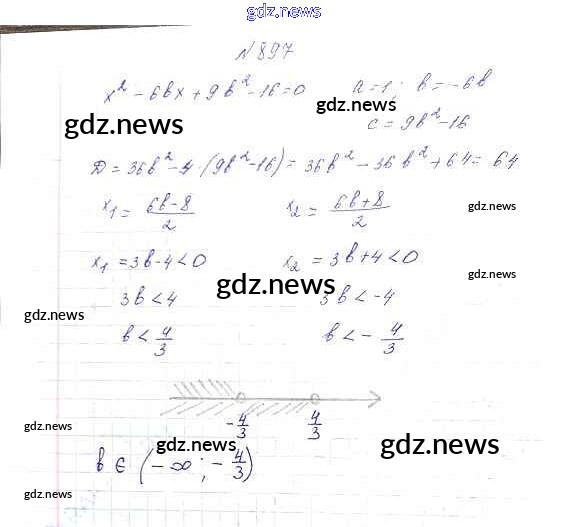 gdz.news
N 897
x² - 6bx + 9b² - 16 = 0    a = 1 ; b = -6b
gdz.news
gdz.news
c = 9b² - 16
D = 36b² - 4 · (9b² - 16) = 36b² - 36b² + 64 = 64
x₁ = (6b - 8)/2    x₂ = (6b + 8)/2
gdz.news
x₁ = 3b - 4 < 0    x₂ = 3b + 4 < 0
gdz.news
3b < 4    3b < -4
gdz.news
gdz.news
b < 4/3    b < - 4/3
-4/3    4/3
gdz.news
gdz.news
gdz.news
b ∈ (-∞ ; -4/3)
gdz.news